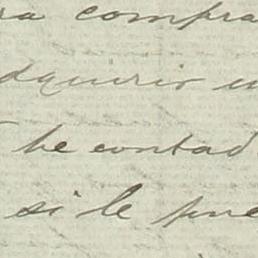 ra compra
dquirir u
he contad
si le pue